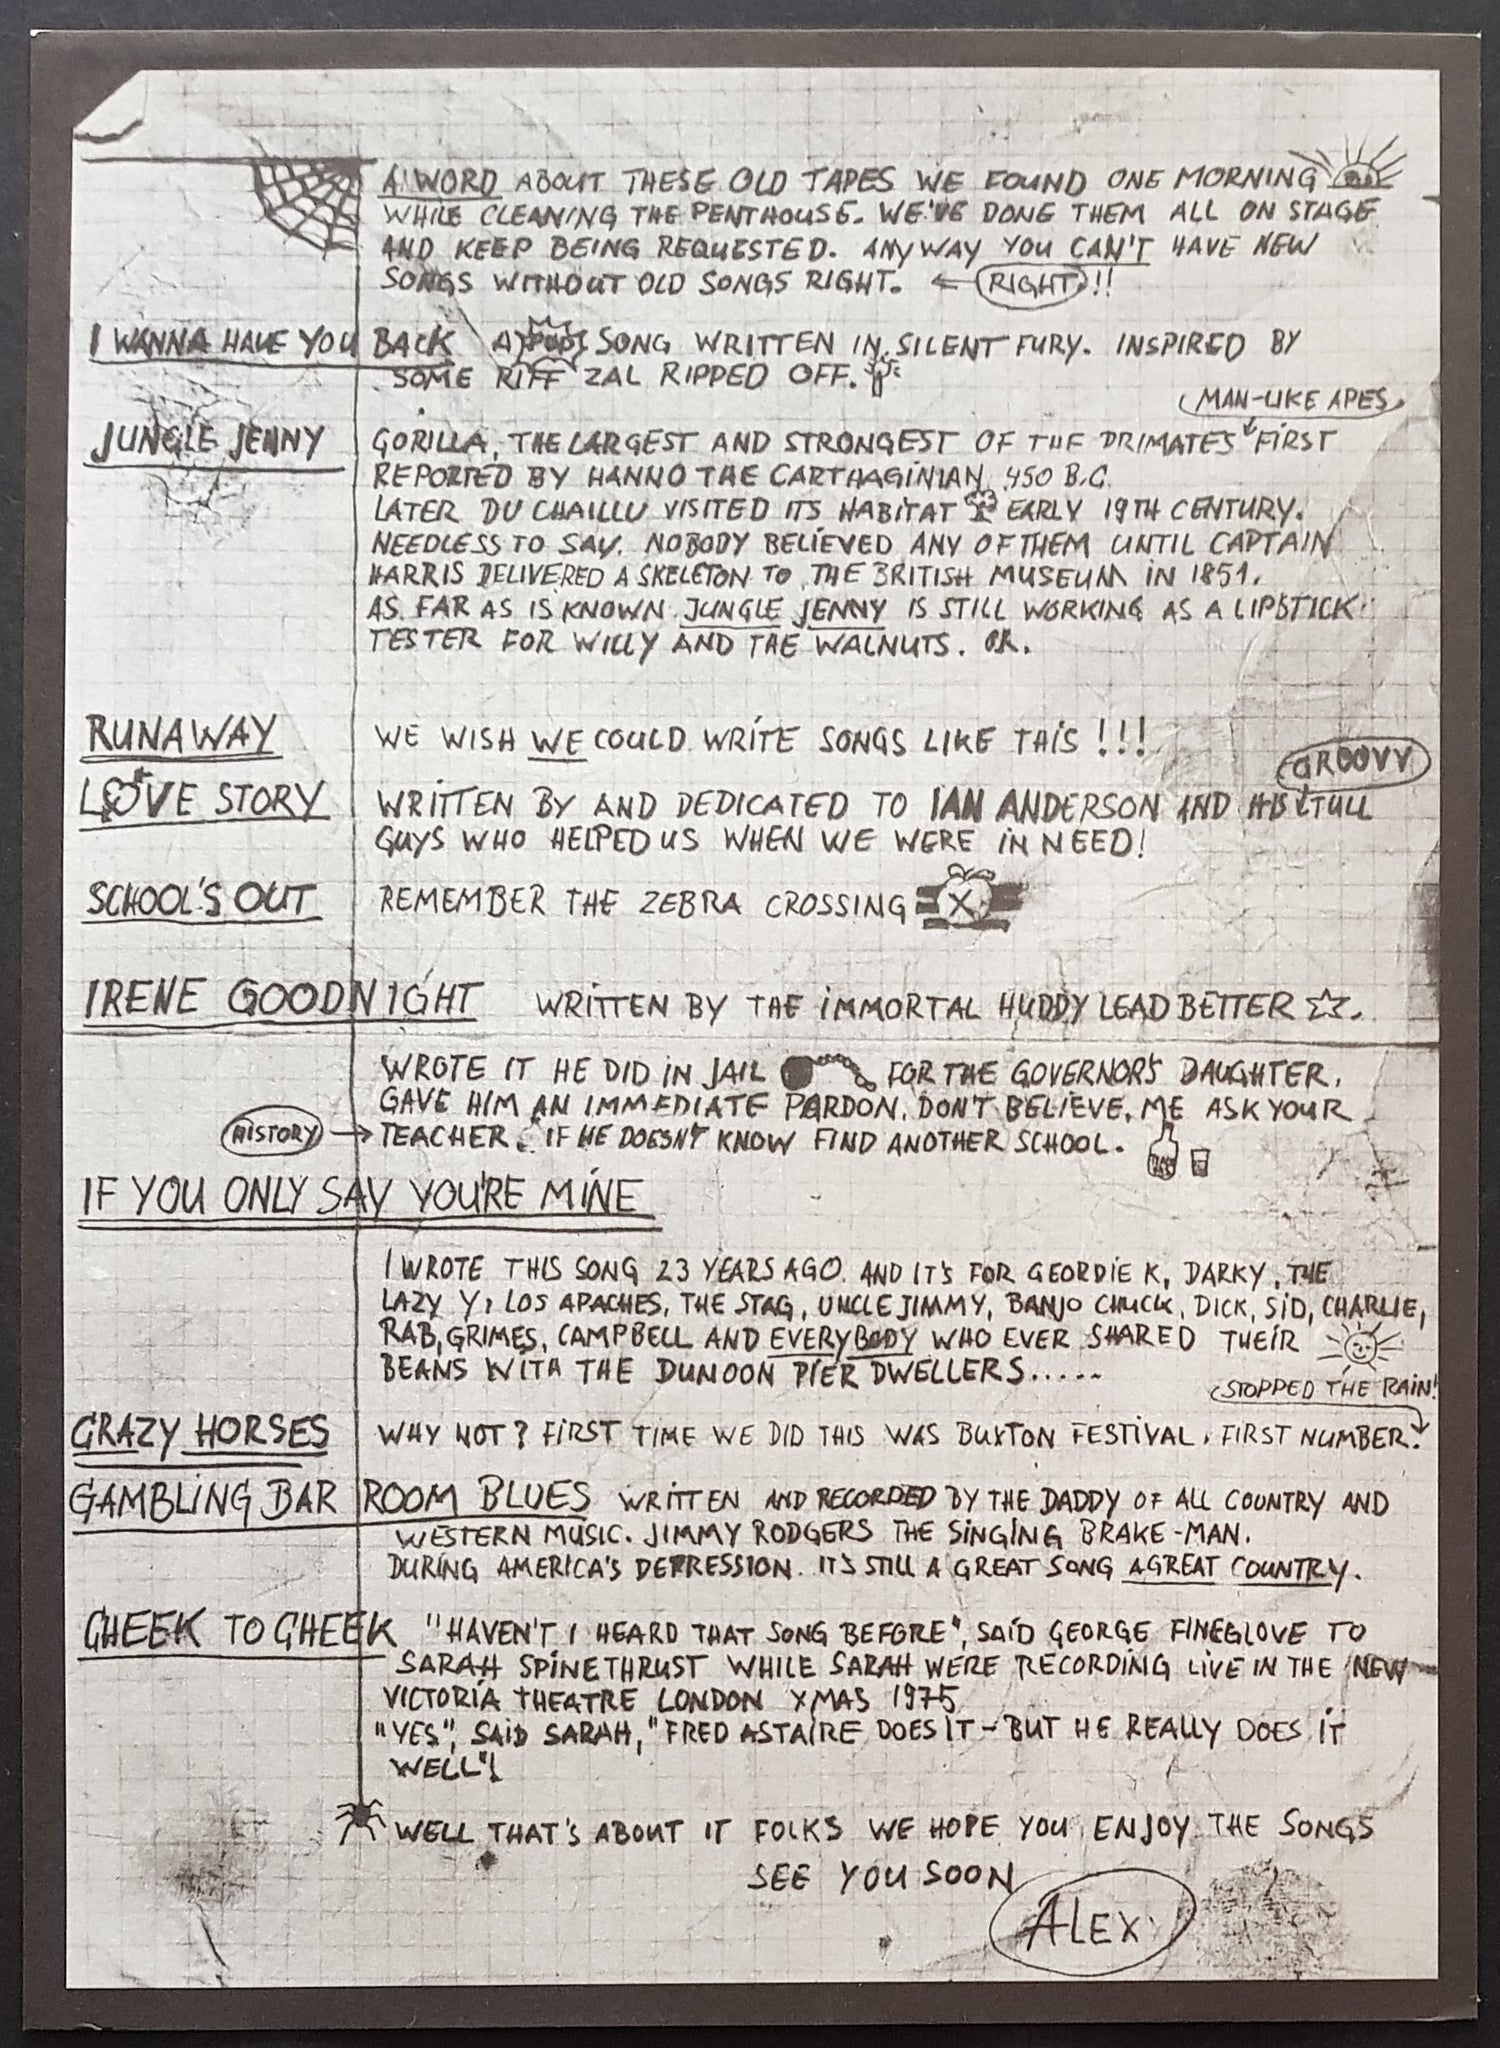 A WORD ABOUT THESE OLD TAPES WE FOUND ONE MORNING
WHILE CLEANING THE PENTHOUSE. WE'VE DONE THEM ALL ON STAGE
AND KEEP BEING REQUESTED. ANYWAY YOU CAN'T HAVE NEW
SONGS WITHOUT OLD SONGS RIGHT. ← RIGHT!!
I WANNA HAVE YOU BACK A POP SONG WRITTEN IN SILENT FURY. INSPIRED BY
SOME RIFF ZAL RIPPED OFF.
MAN-LIKE APES
JUNGLE JENNY GORILLA, THE LARGEST AND STRONGEST OF THE PRIMATES FIRST
REPORTED BY HANNO THE CARTHAGINIAN 450 B.C.
LATER DU CHAILLU VISITED ITS HABITAT EARLY 19TH CENTURY.
NEEDLESS TO SAY. NOBODY BELIEVED ANY OF THEM UNTIL CAPTAIN
HARRIS DELIVERED A SKELETON TO THE BRITISH MUSEUM IN 1851.
AS FAR AS IS KNOWN JUNGLE JENNY IS STILL WORKING AS A LIPSTICK
TESTER FOR WILLY AND THE WALNUTS. OK.
RUNAWAY WE WISH WE COULD WRITE SONGS LIKE THIS!!!
GROOVY
LOVE STORY WRITTEN BY AND DEDICATED TO IAN ANDERSON AND HIS TULL
GUYS WHO HELPED US WHEN WE WERE IN NEED!
SCHOOL'S OUT REMEMBER THE ZEBRA CROSSING X
IRENE GOODNIGHT WRITTEN BY THE IMMORTAL HUDDY LEADBETTER ☆.
WROTE IT HE DID IN JAIL FOR THE GOVERNOR'S DAUGHTER.
GAVE HIM AN IMMEDIATE PARDON. DON'T BELIEVE, ME ASK YOUR
HISTORY → TEACHER. IF HE DOESN'T KNOW FIND ANOTHER SCHOOL.
IF YOU ONLY SAY YOU'RE MINE
I WROTE THIS SONG 23 YEARS AGO. AND IT'S FOR GEORDIE K, DARKY, THE
LAZY Y, LOS APACHES, THE STAG, UNCLE JIMMY, BANJO CHUCK, DICK, SID, CHARLIE,
RAB, GRIMES, CAMPBELL AND EVERYBODY WHO EVER SHARED THEIR
BEANS WITH THE DUNOON PIER DWELLERS.....
STOPPED THE RAIN!
CRAZY HORSES WHY NOT? FIRST TIME WE DID THIS WAS BUXTON FESTIVAL. FIRST NUMBER.
GAMBLING BAR ROOM BLUES WRITTEN AND RECORDED BY THE DADDY OF ALL COUNTRY AND
WESTERN MUSIC. JIMMY RODGERS THE SINGING BRAKE-MAN.
DURING AMERICA'S DEPRESSION. IT'S STILL A GREAT SONG A GREAT COUNTRY.
CHEEK TO CHEEK "HAVEN'T I HEARD THAT SONG BEFORE", SAID GEORGE FINEGLOVE TO
SARAH SPINETHRUST WHILE SARAH WERE RECORDING LIVE IN THE NEW
VICTORIA THEATRE LONDON XMAS 1975
"YES", SAID SARAH, "FRED ASTAIRE DOES IT - BUT HE REALLY DOES IT
WELL"!
WELL THAT'S ABOUT IT FOLKS WE HOPE YOU ENJOY THE SONGS
SEE YOU SOON
ALEX